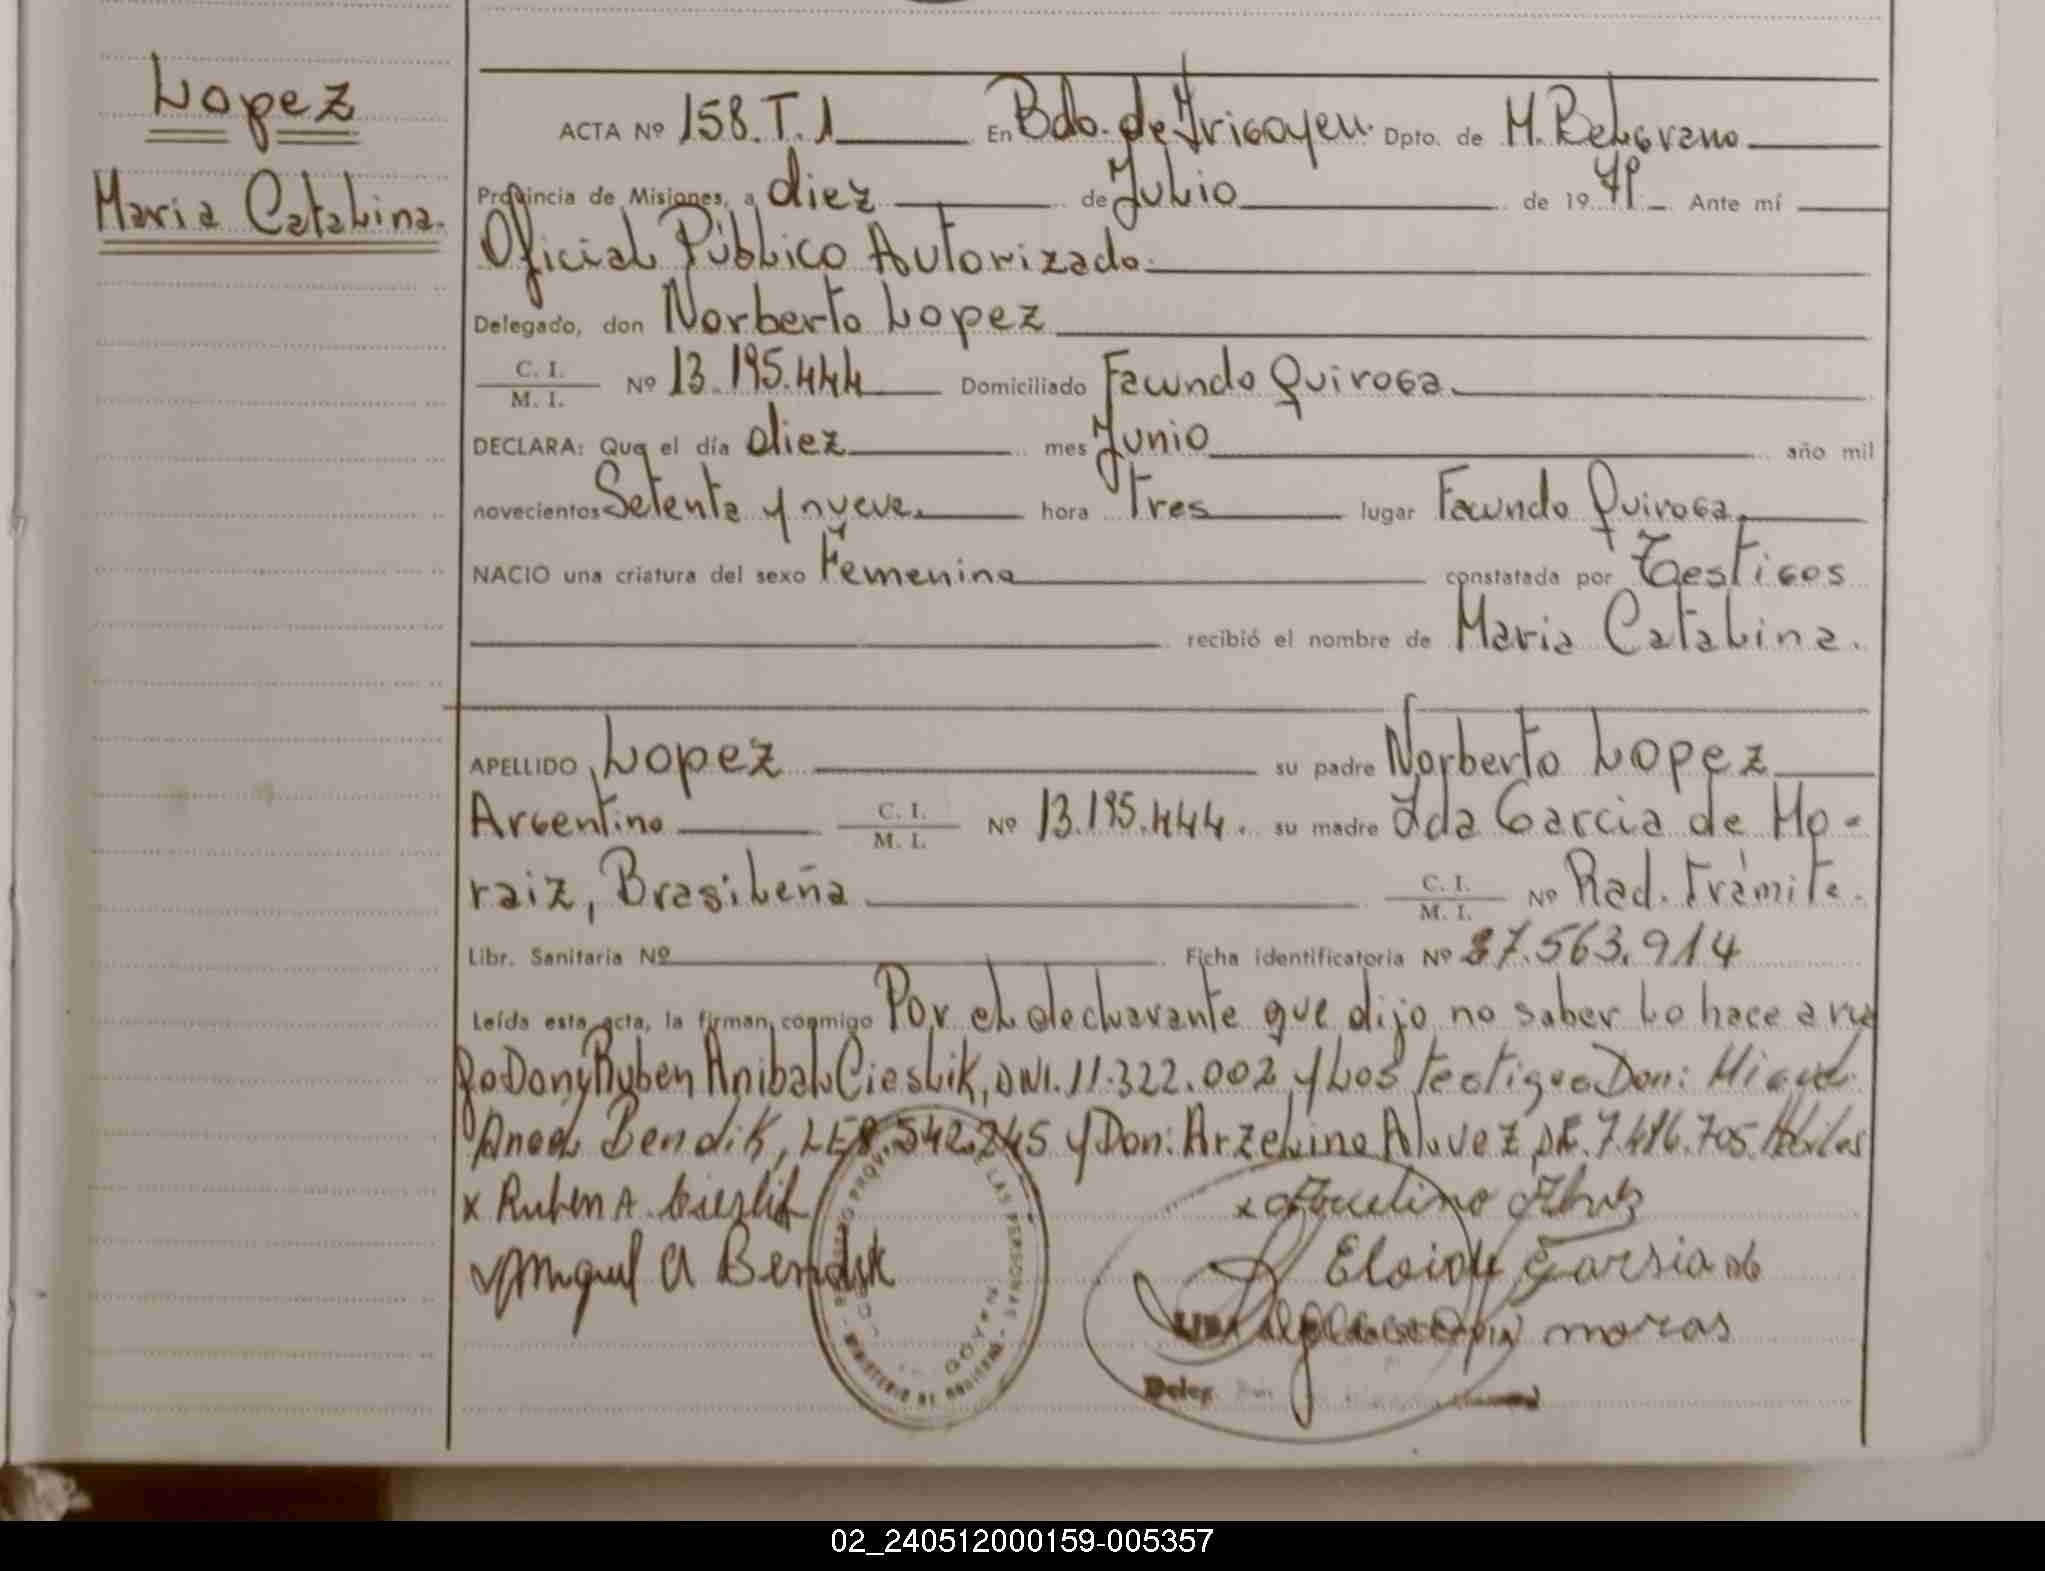 Lopez
Maria Catalina.
ACTA Nº 158.T.1 En Bdo. de Irigoyen. Dpto. de M. Belgrano
Provincia de Misiones, a diez de Julio de 19 79 Ante mí
Oficial Público Autorizado.
Delegado, don Norberto Lopez
C. I.
M. I. Nº 13.195.444 Domiciliado Facundo Quiroga
DECLARA: Que el día diez mes Junio año mil
novecientos Setenta y nueve. hora Tres lugar Facundo Quiroga.
NACIO una criatura del sexo Femenino constatada por Testigos
recibió el nombre de Maria Catalina.
APELLIDO Lopez su padre Norberto Lopez
Argentino C. I.
M. I. Nº 13.195.444. su madre Ida Garcia de Mo-
raiz, Brasileña C. I.
M. I. Nº Rad. Trámite.
Libr. Sanitaria Nº Ficha identificatoria Nº 27.563.914
Leída esta acta, la firman conmigo Por el declarante que dijo no saber lo hace a rue
go Don Ruben Anibal Cieslik, DNI. 11.322.002 y Los testigos Don: Miguel
Angel Bendik, LE 8.542.245 y Don: Arzelino Alvez, 7.486.705. Hábiles
x Ruben A. Cieslik
Miguel A Bendik
Garsia de
moras
Deleg.
02_240512000159-005357